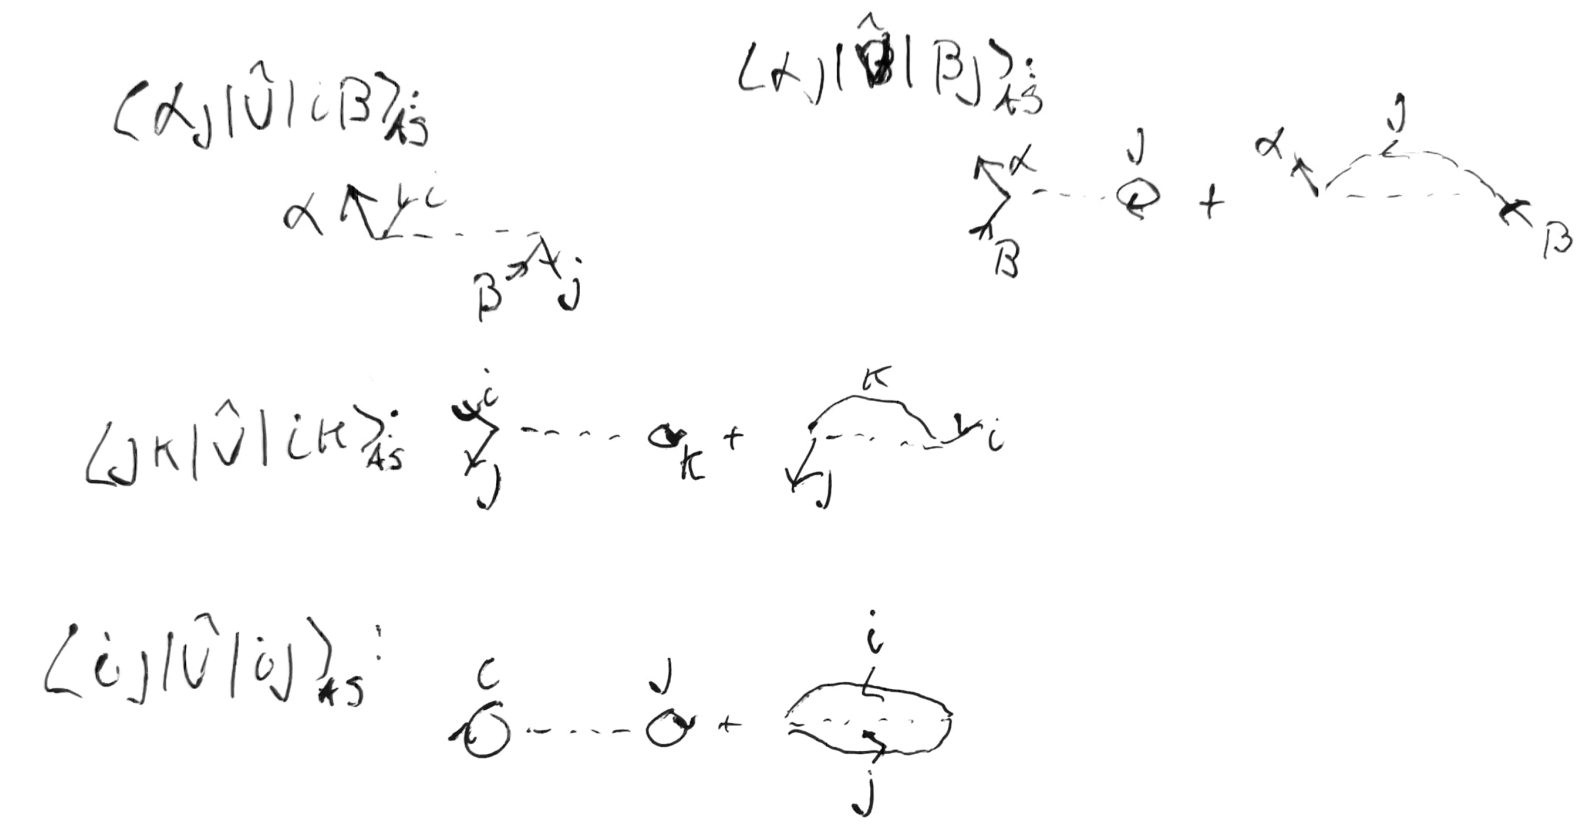 ⟨αj|V̂|iβ⟩AS:
α i
β j
⟨αj|V̂|βj⟩AS:
α j + α j
β β
⟨jk|V̂|ik⟩AS: i k + k i
j j
⟨ij|V̂|ij⟩AS: i j + i
j